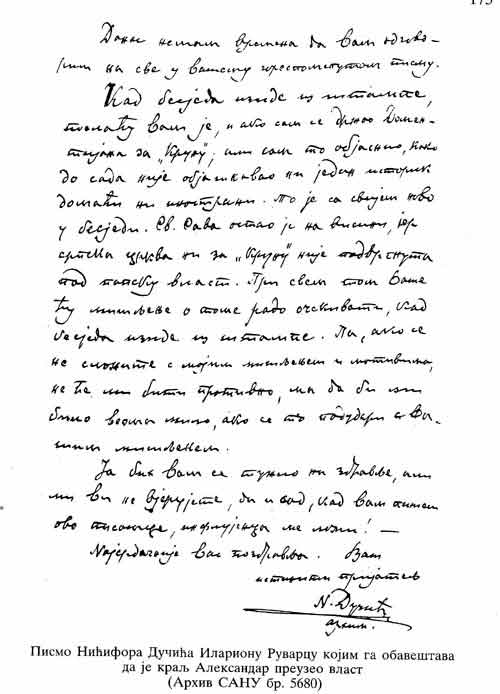 175
Данас немам времена да вам одгово-
рим на све у вашему пријепоменутом писму.
Кад бесједа изиђе из штампе,
послаћу вам је, и ако сам се држао Домен-
тијана за „круну", али сам то објаснио, како
до сада није објашњавао ни један историк
домаћи ни инострани. То је са свијем ново
у бесједи. Св. Сава остао је на висини, јер
српска црква ни за „круну" није подвргнута
под папску власт. При свем том Ваше
ћу мишљење о томе радо очекивати, кад
бесједа изиђе из штампе. Па, ако се
не сложите с мојим мишљењем и мотивима,
не ће ми бити противно, ма да би ми
било веома мило, ако се то подудари с Ва-
шим мишљењем.
Ја бих вам се тужио на здравље, али
ми ви не вјерујете, да и сад, кад вам пишем
ово писамце, инфлујенца ме мори! —
Најсрдачније вас поздравља. Ваш
истинити пријатељ
Н. Дучић
архим.
Писмо Нићифора Дучића Илариону Руварцу којим га обавештава
да је краљ Александар преузео власт
(Архив САНУ бр. 5680)